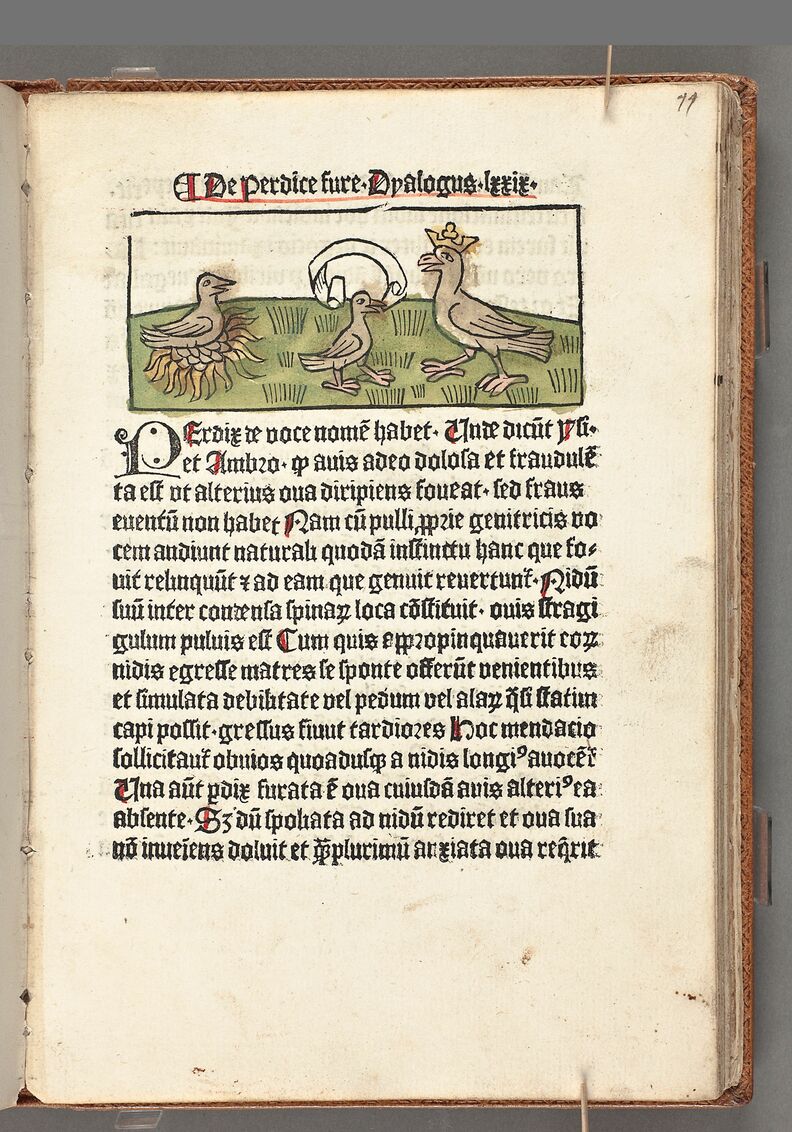 ¶ De perdice fure · Dyalogus · lxxix ·
PErdix de voce nomē habet · Unde dicūt ysi·
et Ambro · ꝙ auis adeo dolosa et fraudulē
ta est vt alterius oua diripiens foueat · sed fraus
euentū non habet Nam cū pulli ꝓprie genitricis vo
cem audiunt naturali quodā instinctu hanc que fo⸗
uit relinquūt ⁊ ad eam que genuit reuertunt᷑ · Nidū
suū inter condensa spinaꝝ loca cōstituit · ouis stragi
gulum puluis est Cum quis appropinquauerit eoꝝ
nidis egresse matres se sponte offerūt venientibus
et simulata debilitate vel pedum vel alaꝝ q̄si statim
capi possit · gressus fiunt tardiores Hoc mendacio
sollicitant᷑ obuios quoadusqꝫ a nidis longiꝰ auocēt᷑
Una aūt ꝑdix furata ē oua cuiusdā auis alteriꝰ ea
absente · Sꝫ dū spoliata ad nidū rediret et oua sua
nō inueiens doluit et ꝙ̄plurimū anxiata oua reqͥrit